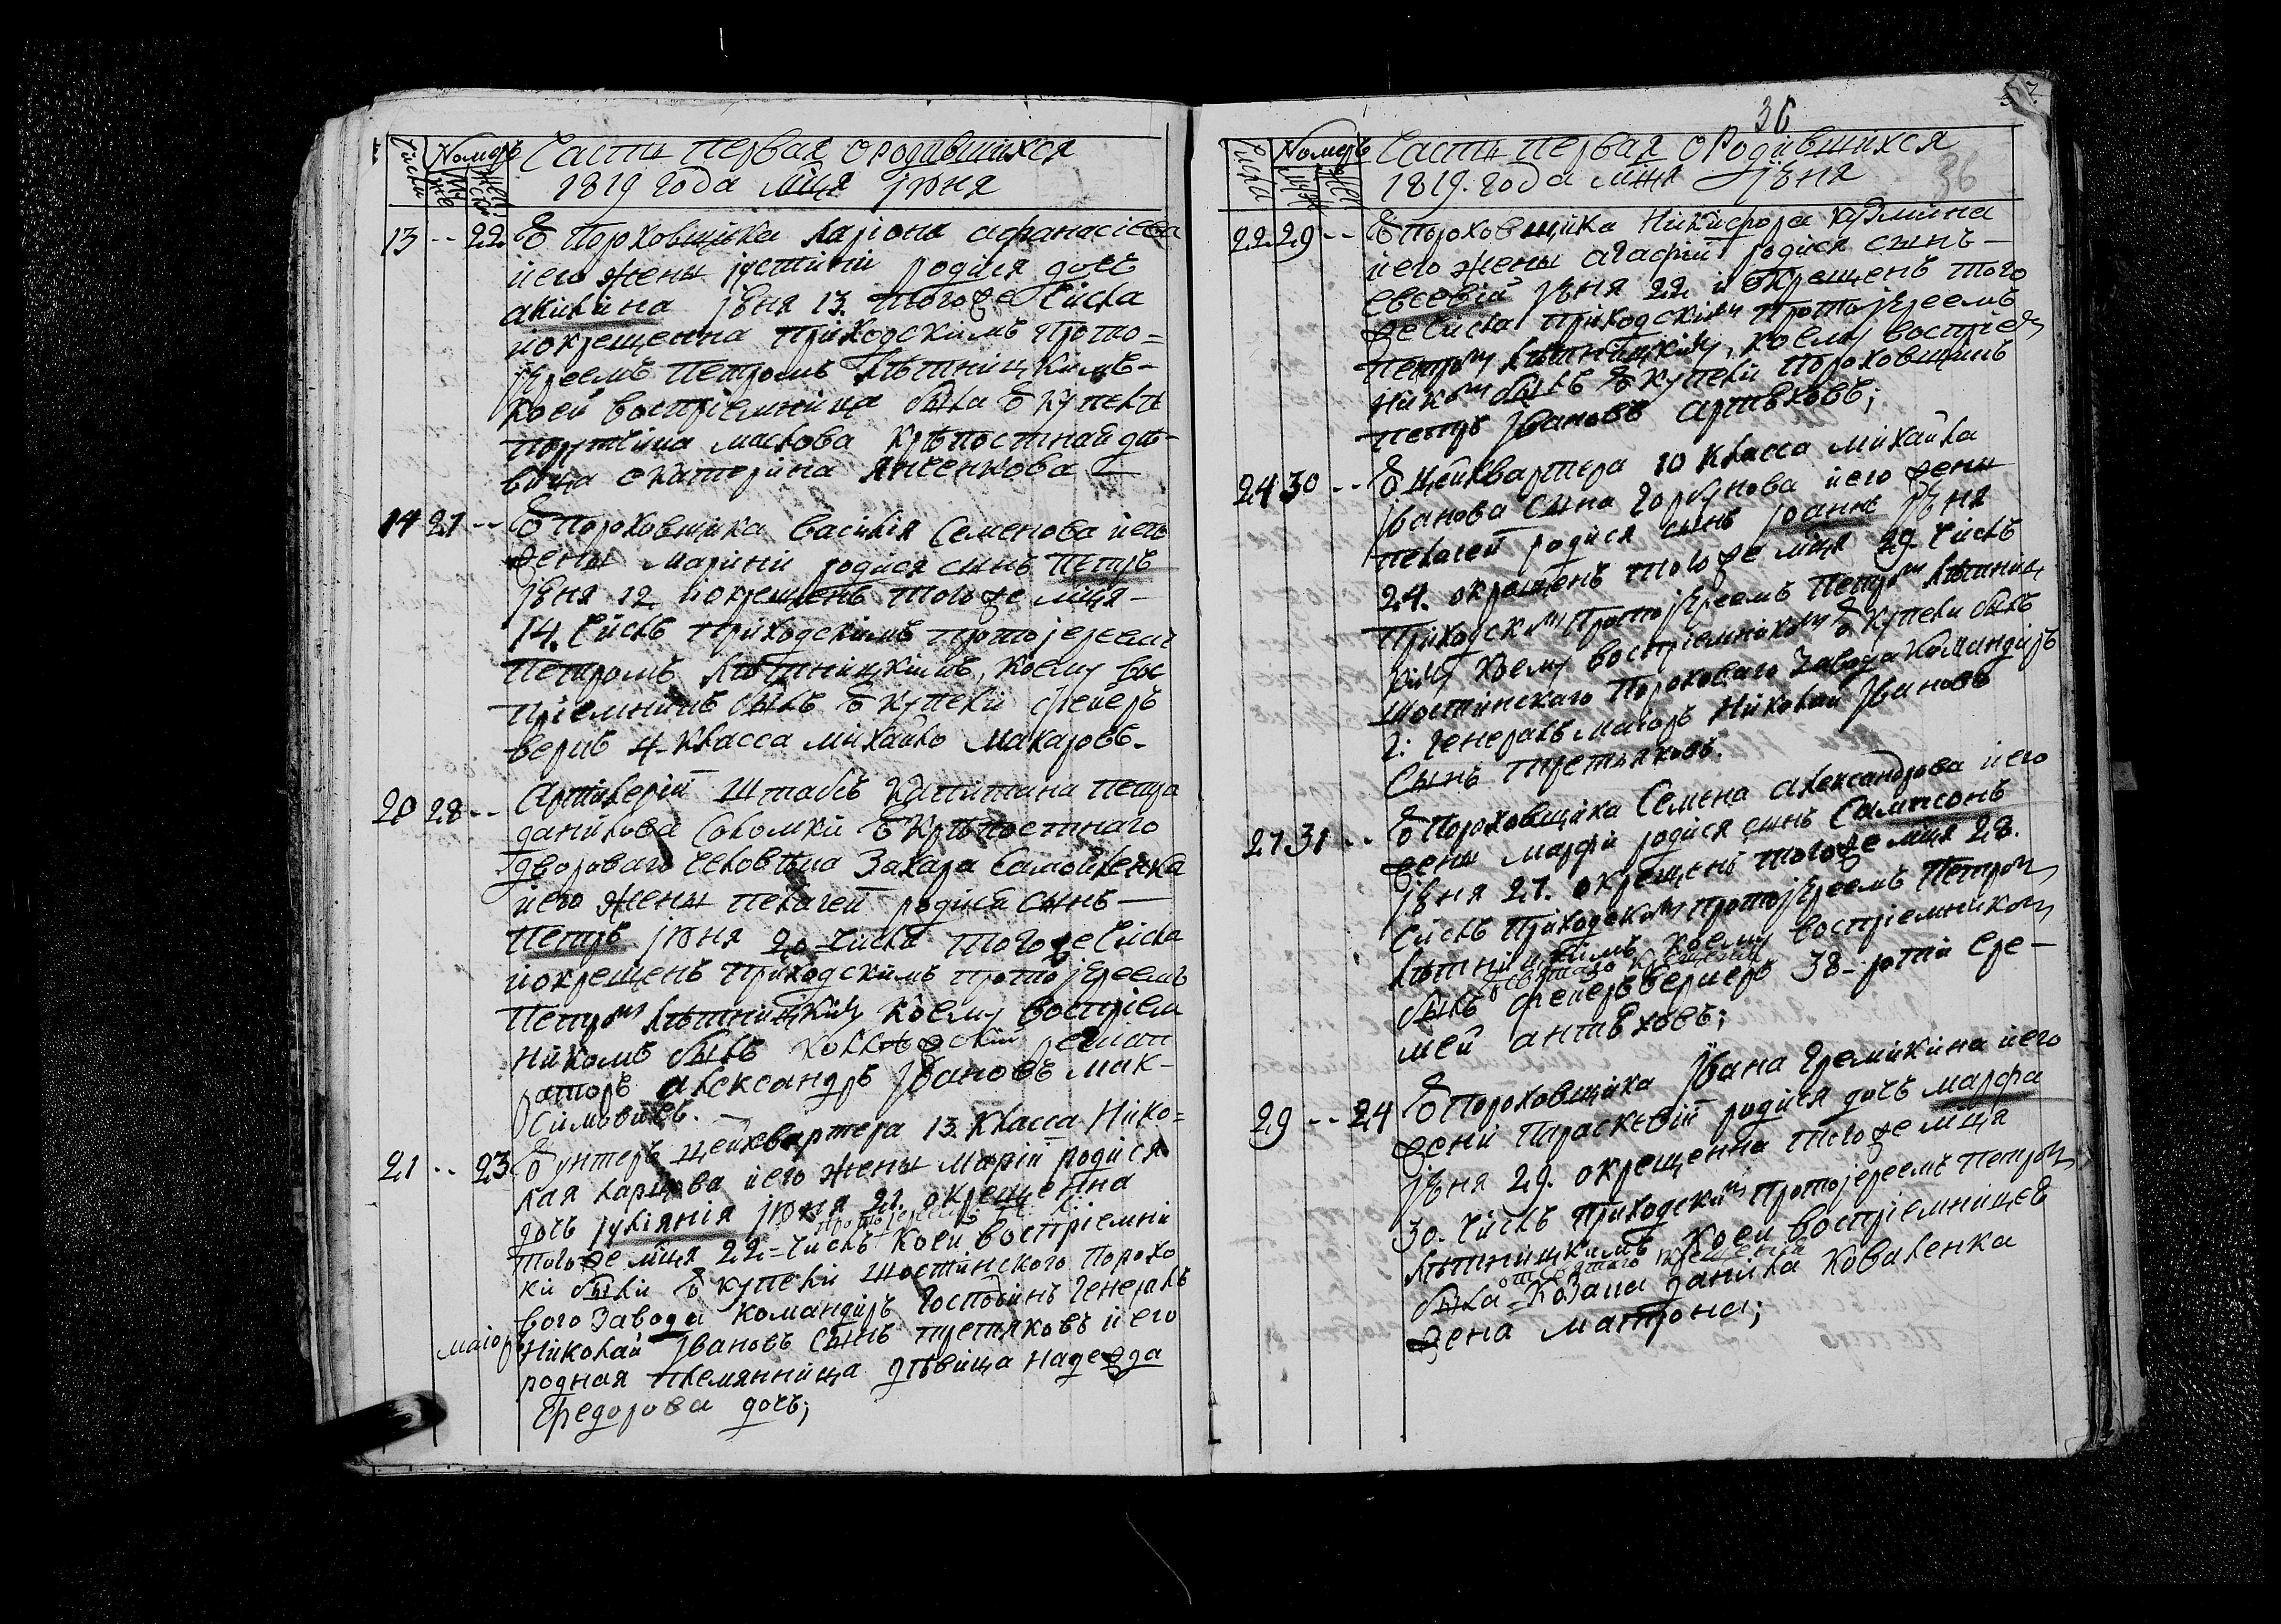 36
37
числа
Номеръ
муже
женс
Часть первая ородившихся
1819 года мца іюня
13 -- 22. Ѿ Пороховщика Ларіона афанасіева
иего жены іустиніи родися дочь
акилина іюня 13. тогоже числа
иокрещенна приходскимъ прото=
іереемъ петромъ лѣтницкимъ-
коей воспріемница была ѿ купели
порутчика маслова крѣпостная дѣ-
вица екатерина янченкова —
14 27 -- Ѿ Пороховщика василія Семенова иего
жены марини родися сынъ Петръ
іюня 12. иокрещенъ тогоже мца-
14. числъ приходскимъ протоіереемъ
петромъ лѣтницкимъ, коему вос
пріемникъ былъ ѿ купели феиеръ
веркъ 4-класса михайло макаровъ-
20 28 -- Артилеріи штабсъ капитана петра
данилова Соломки ѿ крѣпостнаго
двороваго человѣка Захара Самойленка
иего жены пелагеи родися сынъ —
Петръ іюня 20 числа тогоже числа
иокрещенъ приходскимъ протоіереемъ
Петромъ лѣтницкимъ коему воспріем
никомъ былъ коллежскій регист
раторъ александръ Ивановъ мак-
симовичъ. —
21 -- 23 Ѿ унтеръ цейхвартера 13. класса Нико=
лая карцова иего жены маріи родися
дочь іуліянія іюня 21. окрещенна
протоіереемъ
тогоже мца 22=числъ коей воспріемни
ки были ѿ купели Шостинского порохо
вого завода командиръ Господинъ Генералъ
маіоръ Николай Ивановъ сынъ третяковъ иего
родная племянница дѣвица надежда
Федорова дочь;
36
числа
Номеръ
муже
женс
Часть первая ородившихся
1819. года мца іюня
22. 29 -- Ѿ пороховщика Никифора кузмина
иего жены агафіи родися сынъ —
евсевій іюня 22 и окрещенъ того
же числа приходскимъ протоіереемъ
петромъ лѣтницкимъ, коему воспріем
никомъ былъ ѿ купели пороховщикъ
петръ Ивановъ артюховъ;
24 30 -- Ѿ Цейхвартера 10 класса михайла
Иванова сына Горбунова иего жены
пелагеи родися сынъ іоаннъ іюня
24. окрещенъ тогоже мца 29. числъ
приходскимъ протоіереемъ Петромъ лѣтниц
кимъ коему воспріемникомъ ѿ купели былъ
шостинскаго пороховаго завода командиръ
г: генералъ маіоръ Николай Ивановъ
сынъ третьяковъ.
27 31 -- Ѿ Пороховщика Семена александрова иего
жены марфи родися сынъ Сампсонъ
іюня 27. окрещенъ тогоже мца 28.
числъ приходскимъ протоіереемъ Петромъ
лѣтницкимъ, коему воспріемникомъ
ѿ святаго крещенія
былъ феиервернеръ 38-роти Ере-
мей антюховъ;
29 -- 24 Ѿ Пороховщика Ивана Еремикина иего
жени параскевіи родися дочь марфа
іюня 29. окрещенна тогоже мца
30. числъ приходскимъ протоіереемъ петромъ
лѣтницкимъ коей воспріемницею
от святаго крещенія
была козака данила коваленка
жена матрона;